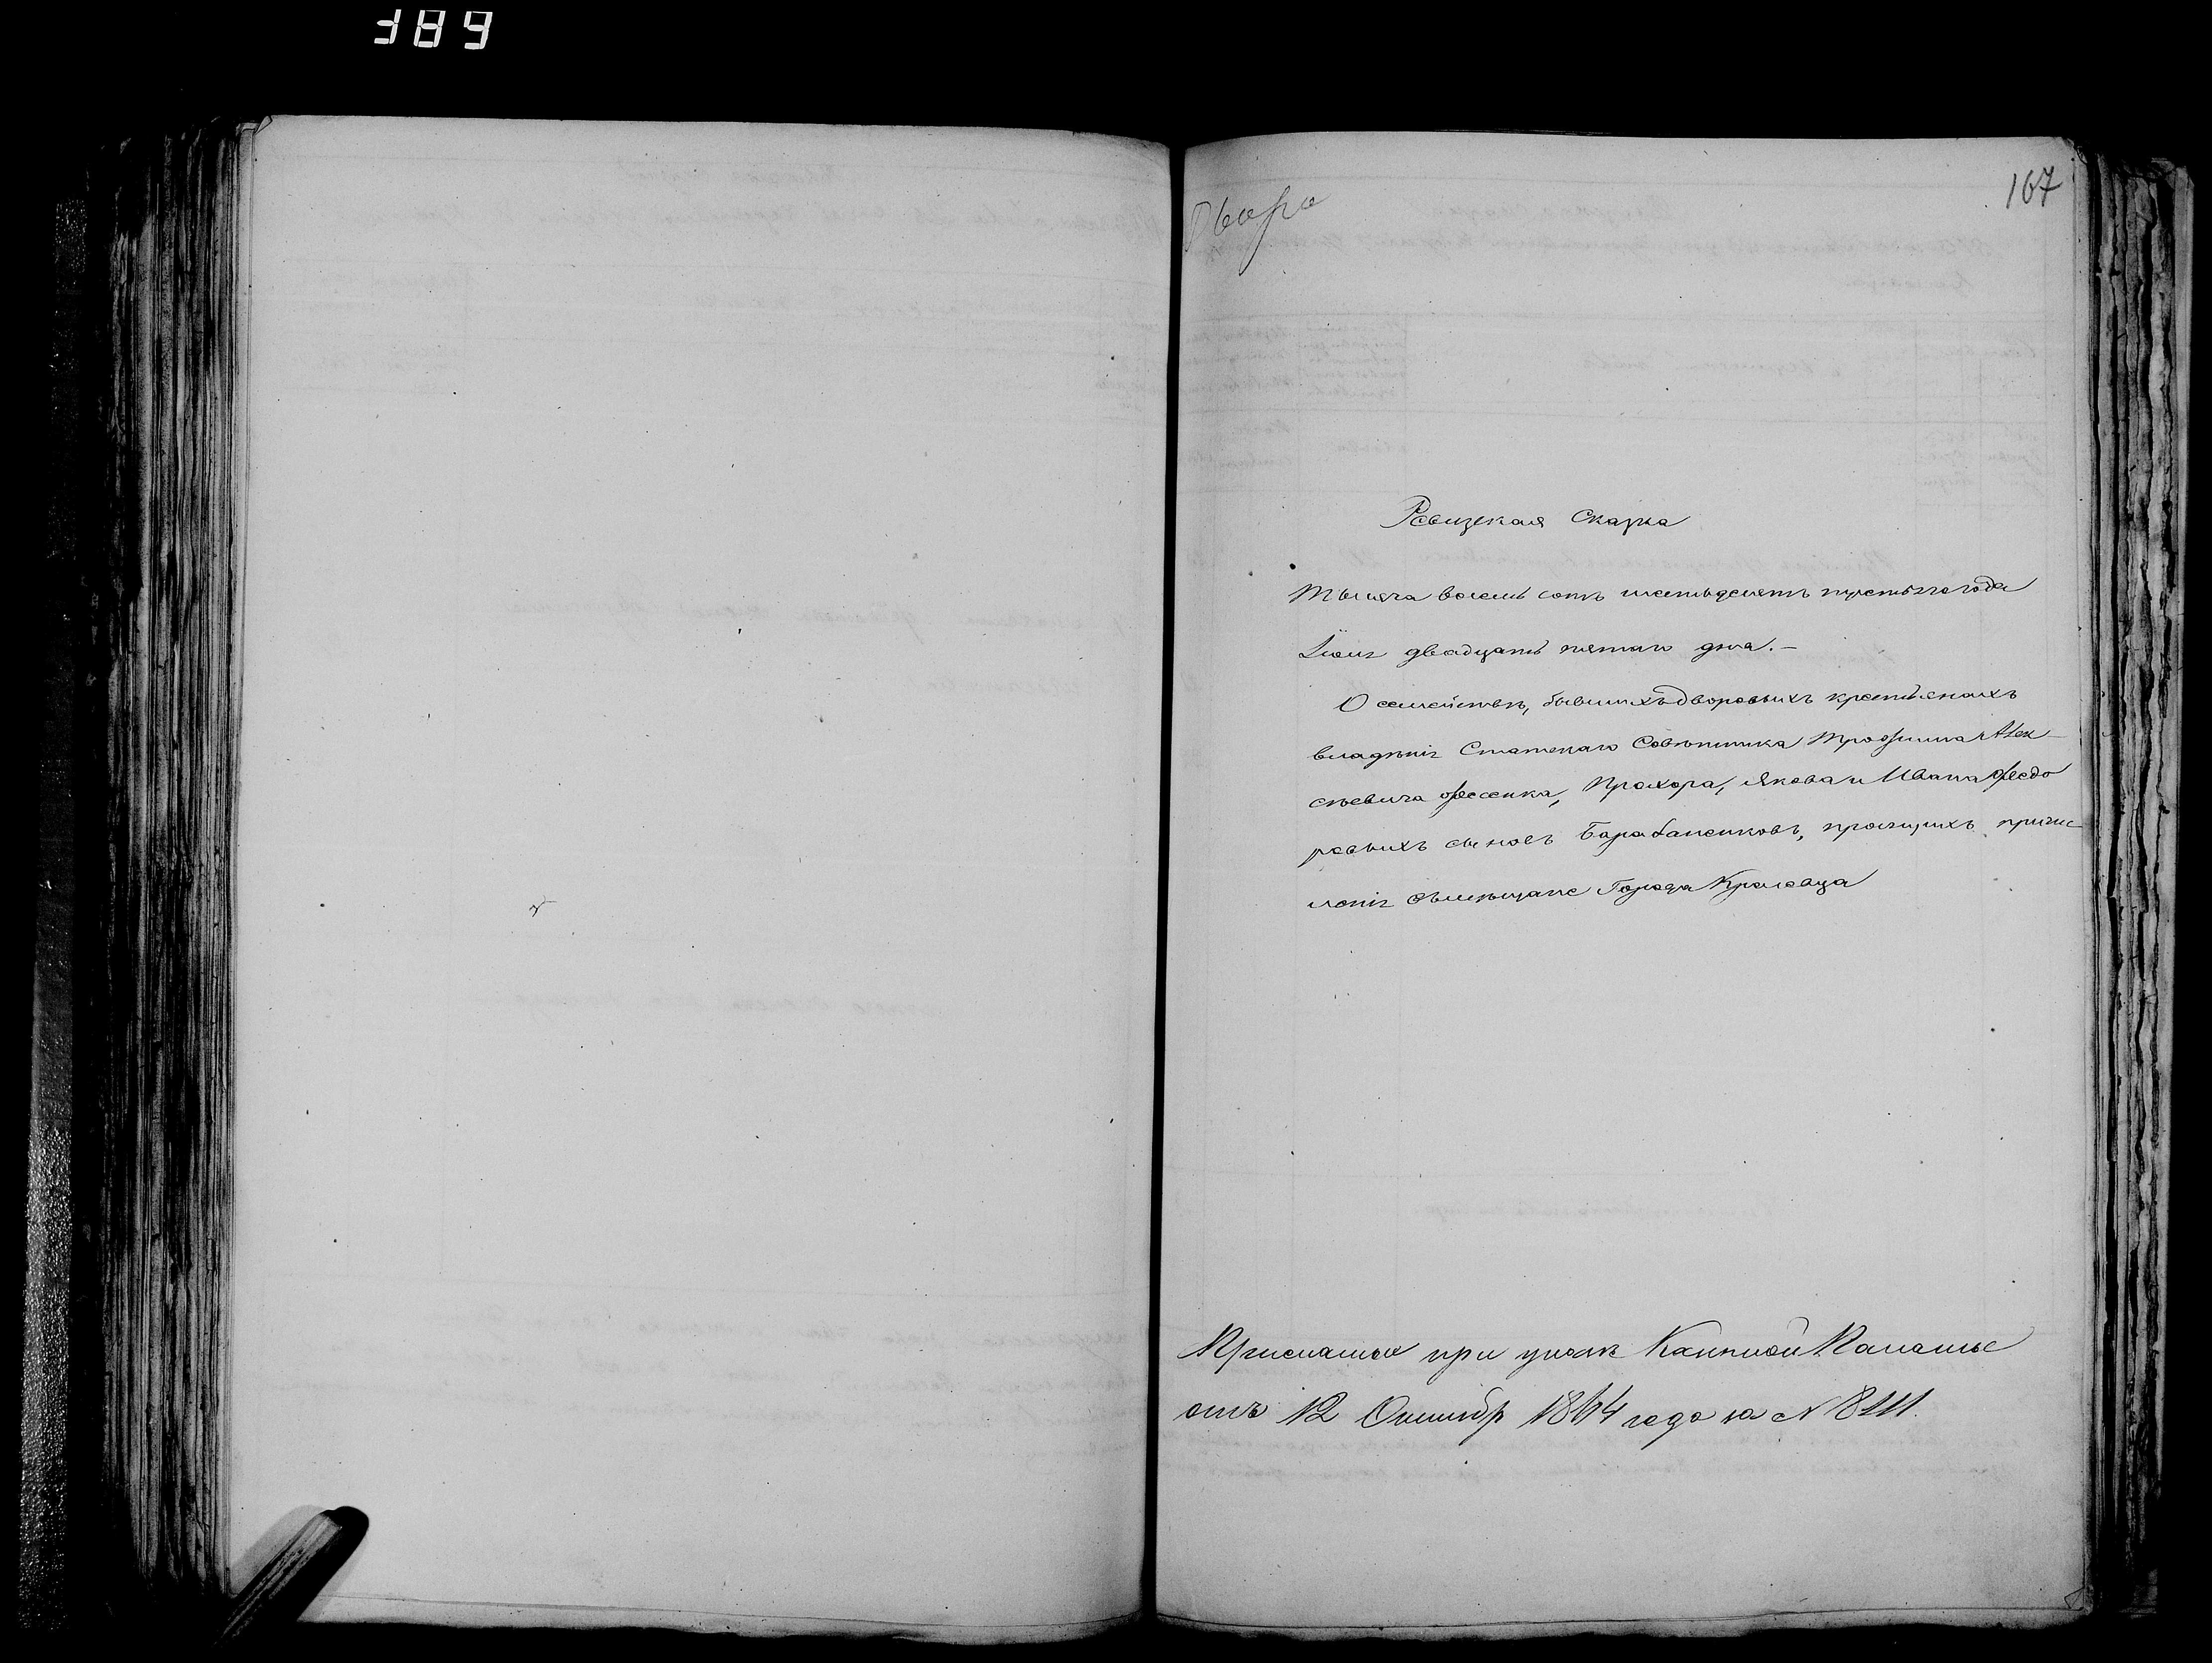 389
Двора
167
Ревизская Сказка
Тысяча восемь сотъ шестьдесятъ третьяго года
Іюня двадцать пятаго дня. —
О семействѣ, бывшихъ дворовыхъ крестьянахъ
владѣнія Статскаго Совѣтника Трофима Алек-
сѣевича Фесенка, Прохора, Якова и Ивана Федо
ровыхъ сыновъ Барабаненковъ, просящихъ причис
ленія въ мѣщане Города Кролевца
при указѣ Казенной Палаты
отъ 12 Октября 1864 года за №